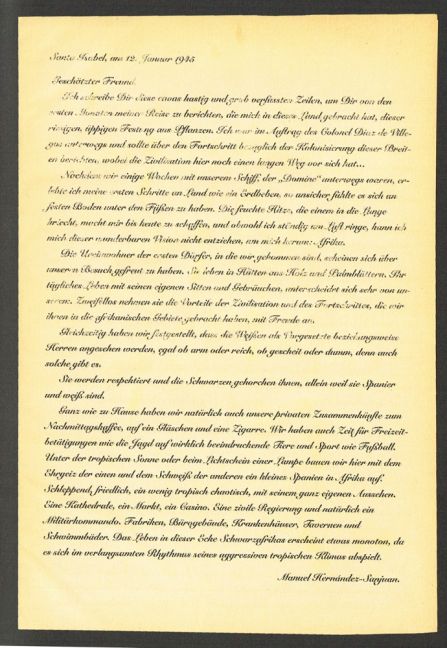 Santa Isabel, am 12. Januar 1945
Geschätzter Freund.
Ich schreibe Dir diese etwas hastig und grob verfassten Zeilen, um Dir von den
ersten Monaten meiner Reise zu berichten, die mich in dieses Land gebracht hat, dieser
riesigen, üppigen Festung aus Pflanzen. Ich war im Auftrag des Colonel Díaz de Ville-
gas unterwegs und sollte über den Fortschritt bezüglich der Kolonisierung dieser Breit-
en berichten, wobei die Zivilisation hier noch einen langen Weg vor sich hat...
Nachdem wir einige Wochen mit unserem Schiff, der „Domine“ unterwegs waren, er-
lebte ich meine ersten Schritte an Land wie ein Erdbeben, so unsicher fühlte es sich an
festen Boden unter den Füßen zu haben. Die feuchte Hitze, die einem in die Lunge
kriecht, macht mir bis heute zu schaffen, und obwohl ich ständig um Luft ringe, kann ich
mich dieser wunderbaren Vision nicht entziehen, um mich herum: Afrika.
Die Ureinwohner der ersten Dörfer, in die wir gekommen sind, scheinen sich über
unseren Besuch gefreut zu haben. Sie leben in Hütten aus Holz und Palmblättern. Ihr
tägliches Leben mit seinen eigenen Sitten und Gebräuchen, unterscheidet sich sehr von un-
serem. Zweifellos nehmen sie die Vorteile der Zivilisation und des Fortschrittes, die wir
ihnen in die afrikanischen Gebiete gebracht haben, mit Freude an.
Gleichzeitig haben wir festgestellt, dass die Weißen als Vorgesetzte beziehungsweise
Herren angesehen werden, egal ob arm oder reich, ob gescheit oder dumm, denn auch
solche gibt es.
Sie werden respektiert und die Schwarzen gehorchen ihnen, allein weil sie Spanier
und weiß sind.
Ganz wie zu Hause haben wir natürlich auch unsere privaten Zusammenkünfte zum
Nachmittagskaffee, auf ein Gläschen und eine Zigarre. Wir haben auch Zeit für Freizeit-
betätigungen wie die Jagd auf wirklich beeindruckende Tiere und Sport wie Fußball.
Unter der tropischen Sonne oder beim Lichtschein einer Lampe bauen wir hier mit dem
Ehrgeiz der einen und dem Schweiß der anderen ein kleines Spanien in Afrika auf.
Schleppend, friedlich, ein wenig tropisch chaotisch, mit seinem ganz eigenen Aussehen.
Eine Kathedrale, ein Markt, ein Casino. Eine zivile Regierung und natürlich ein
Militärkommando. Fabriken, Bürogebäude, Krankenhäuser, Tavernen und
Schwimmbäder. Das Leben in dieser Ecke Schwarzafrikas erscheint etwas monoton, da
es sich im verlangsamten Rhythmus seines aggressiven tropischen Klimas abspielt.
Manuel Hernández-Sanjuan.